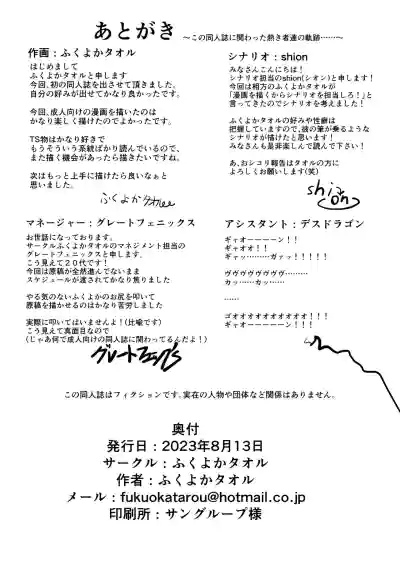 あとがき ～この同人誌に関わった熱き者達の軌跡……～
作画：ふくよかタオル
はじめまして
ふくよかタオルと申します
今回、初の同人誌を出させて頂きました。
自分の好みが出せてかなり良かったです。
今回、成人向けの漫画を描いたのは
かなり楽しく描けたのでよかったです。
TS物はかなり好きで
もうそういう系統ばかり読んでいるので、
また描く機会があったら描きたいですね。
次はもっと上手に描けたら良いなぁと
思いました。
シナリオ：shion
みなさんこんにちは！
シナリオ担当のshion(シオン)と申します！
今回は相方のふくよかタオルが
「漫画を描くからシナリオを担当しろ！」と
言ってきたのでシナリオを考えました！
ふくよかタオルの好みや性癖は
把握していますので、彼の筆が乗るような
シナリオが描けたと思います！
みなさんも是非楽しんで読んで下さい！
あ、おシコリ報告はタオルの方に
よろしくお願いします(笑)
shion
マネージャー：グレートフェニックス
お世話になっております。
サークルふくよかタオルのマネジメント担当の
グレートフェニックスと申します。
こう見えて２０代です！
今回は原稿が全然進んでないまま
スケジュールが過ぎされてかなり焦りました
やる気のないふくよかのお尻を叩いて
原稿を描かせるのはかなり苦労しました
実際に叩いてはいませんよ！(比喩です)
こう見えて真面目なので
(じゃあ何で成人向けの同人誌に関わってるんだよ！)
アシスタント：デスドラゴン
ギャオーーーーン！！
ギャオオ！！
ギャッ………ガァッ！！！！！
ヴヴヴヴヴヴヴ………
カッ……カッ……
……
ゴオオオオオオオオオオ！！！
ギャオーーーーン！！
この同人誌はフィクションです、実在の人物や団体など関係はありません。
奥付
発行日：2023年8月13日
サークル：ふくよかタオル
作者：ふくよかタオル
メール：fukuokatarou@hotmail.co.jp
印刷所：サングループ様